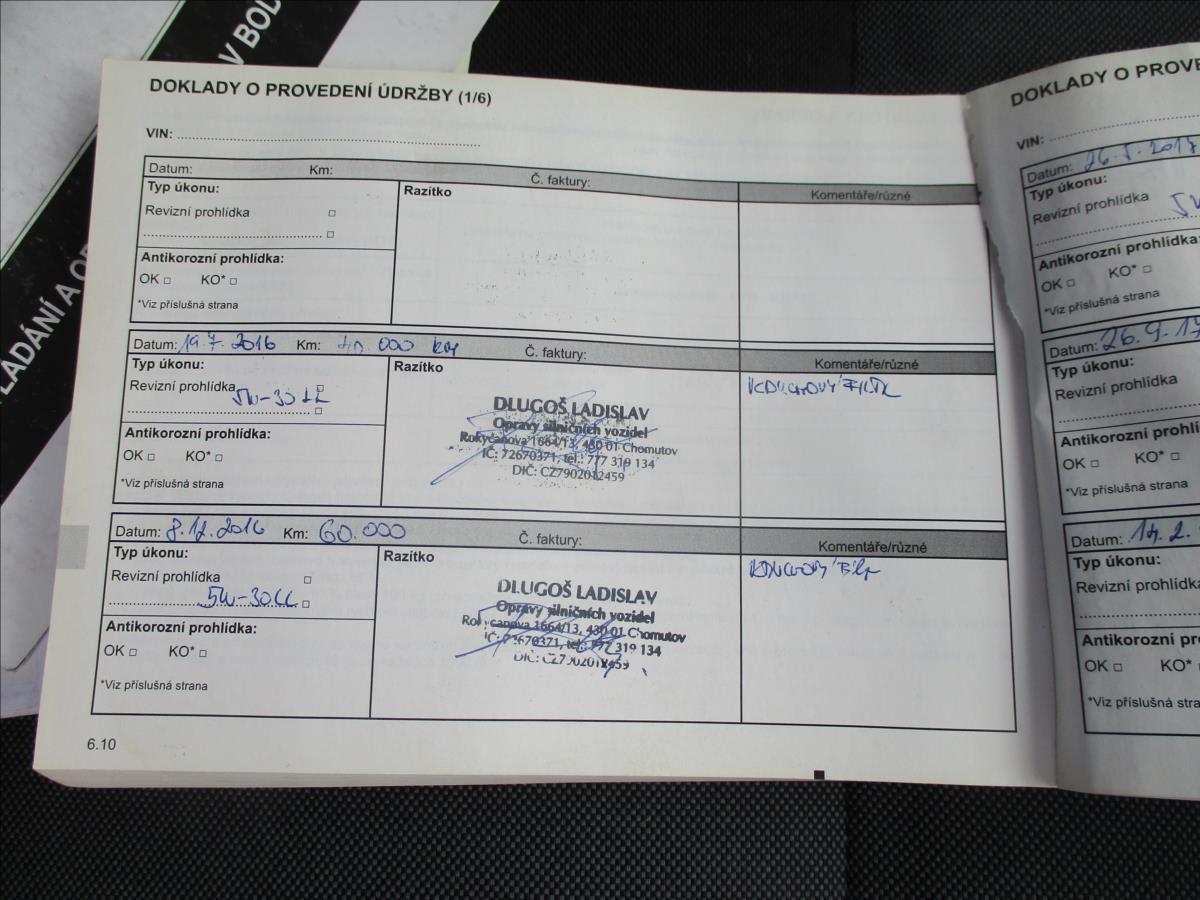 V BOD
LÁDÁNÍ A O
DOKLADY O PROVEDENÍ ÚDRŽBY (1/6)
VIN:
Datum: Km: Č. faktury:
Typ úkonu: Razítko Komentáře/různé
Revizní prohlídka □
□
Antikorozní prohlídka:
OK □ KO* □
*Viz příslušná strana
Datum: 19.7.2016 Km: 40.000 km Č. faktury:
Typ úkonu: Razítko Komentáře/různé
Revizní prohlídka □
5W-30 LL □
Antikorozní prohlídka:
OK □ KO* □
*Viz příslušná strana
DLUGOŠ LADISLAV
Opravy silničních vozidel
Rokycanova 1664/13, 430 01 Chomutov
IČ: 72670371, tel.: 777 319 134
DIČ: CZ7902012459
VZDUCHOVÝ FILTR
Datum: 8.12.2016 Km: 60.000 Č. faktury:
Typ úkonu: Razítko Komentáře/různé
Revizní prohlídka □
5W-30LL □
Antikorozní prohlídka:
OK □ KO* □
*Viz příslušná strana
DLUGOŠ LADISLAV
Opravy silničních vozidel
Rokycanova 1664/13, 430 01 Chomutov
IČ: 72670371, tel.: 777 319 134
DIČ: CZ7902012459
6.10
DOKLADY O PROVE
VIN:
Datum: 2017
Typ úkonu:
Revizní prohlídka
Antikorozní prohlídka:
OK □ KO* □
*Viz příslušná strana
Datum: 26.9.17
Typ úkonu:
Revizní prohlídka
Antikorozní prohlí
OK □ KO* □
*Viz příslušná strana
Datum: 14.2.
Typ úkonu:
Revizní prohlídka
Antikorozní pro
OK □ KO*
*Viz příslušná stra